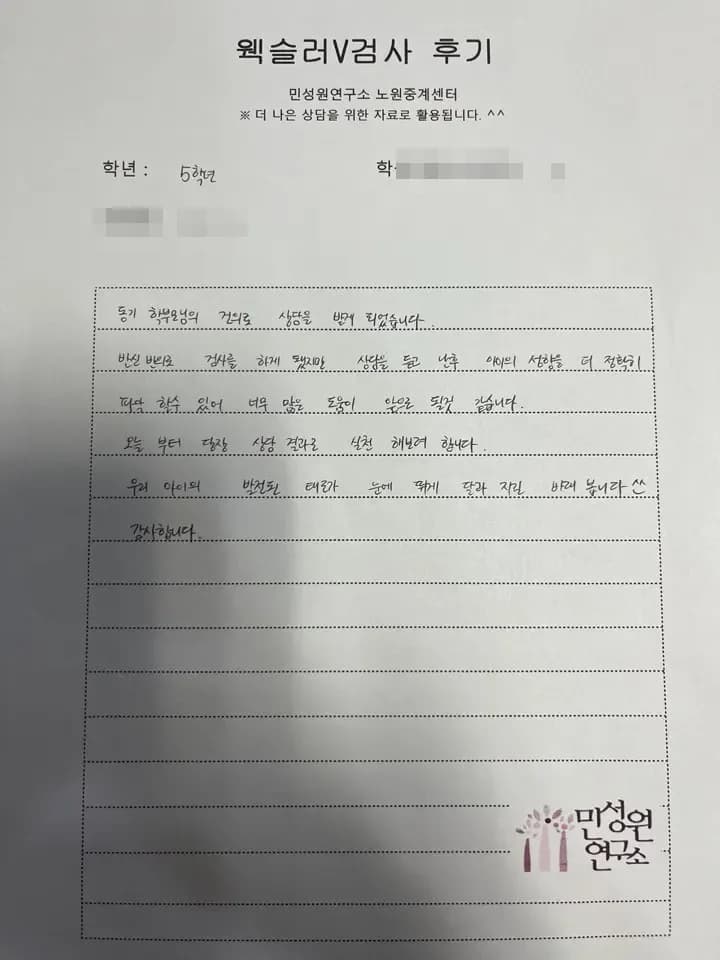 웩슬러V검사 후기
민성원연구소 노원중계센터
※ 더 나은 상담을 위한 자료로 활용됩니다. ^^
학년 : 5학년 학
동기 학부모님의 건의로 상담을 받게 되었습니다.
반신반의로 검사를 하게 됐지만 상담을 듣고 난후 아이의 성향을 더 정확히
파악 할수 있어 너무 많은 도움이 앞으로 될것 같습니다.
오늘 부터 당장 상담 결과로 실천 해보려 합니다.
우리 아이의 발전된 태도가 눈에 띄게 달라 지길 바래 봅니다 ^^
감사합니다.
민성원
연구소